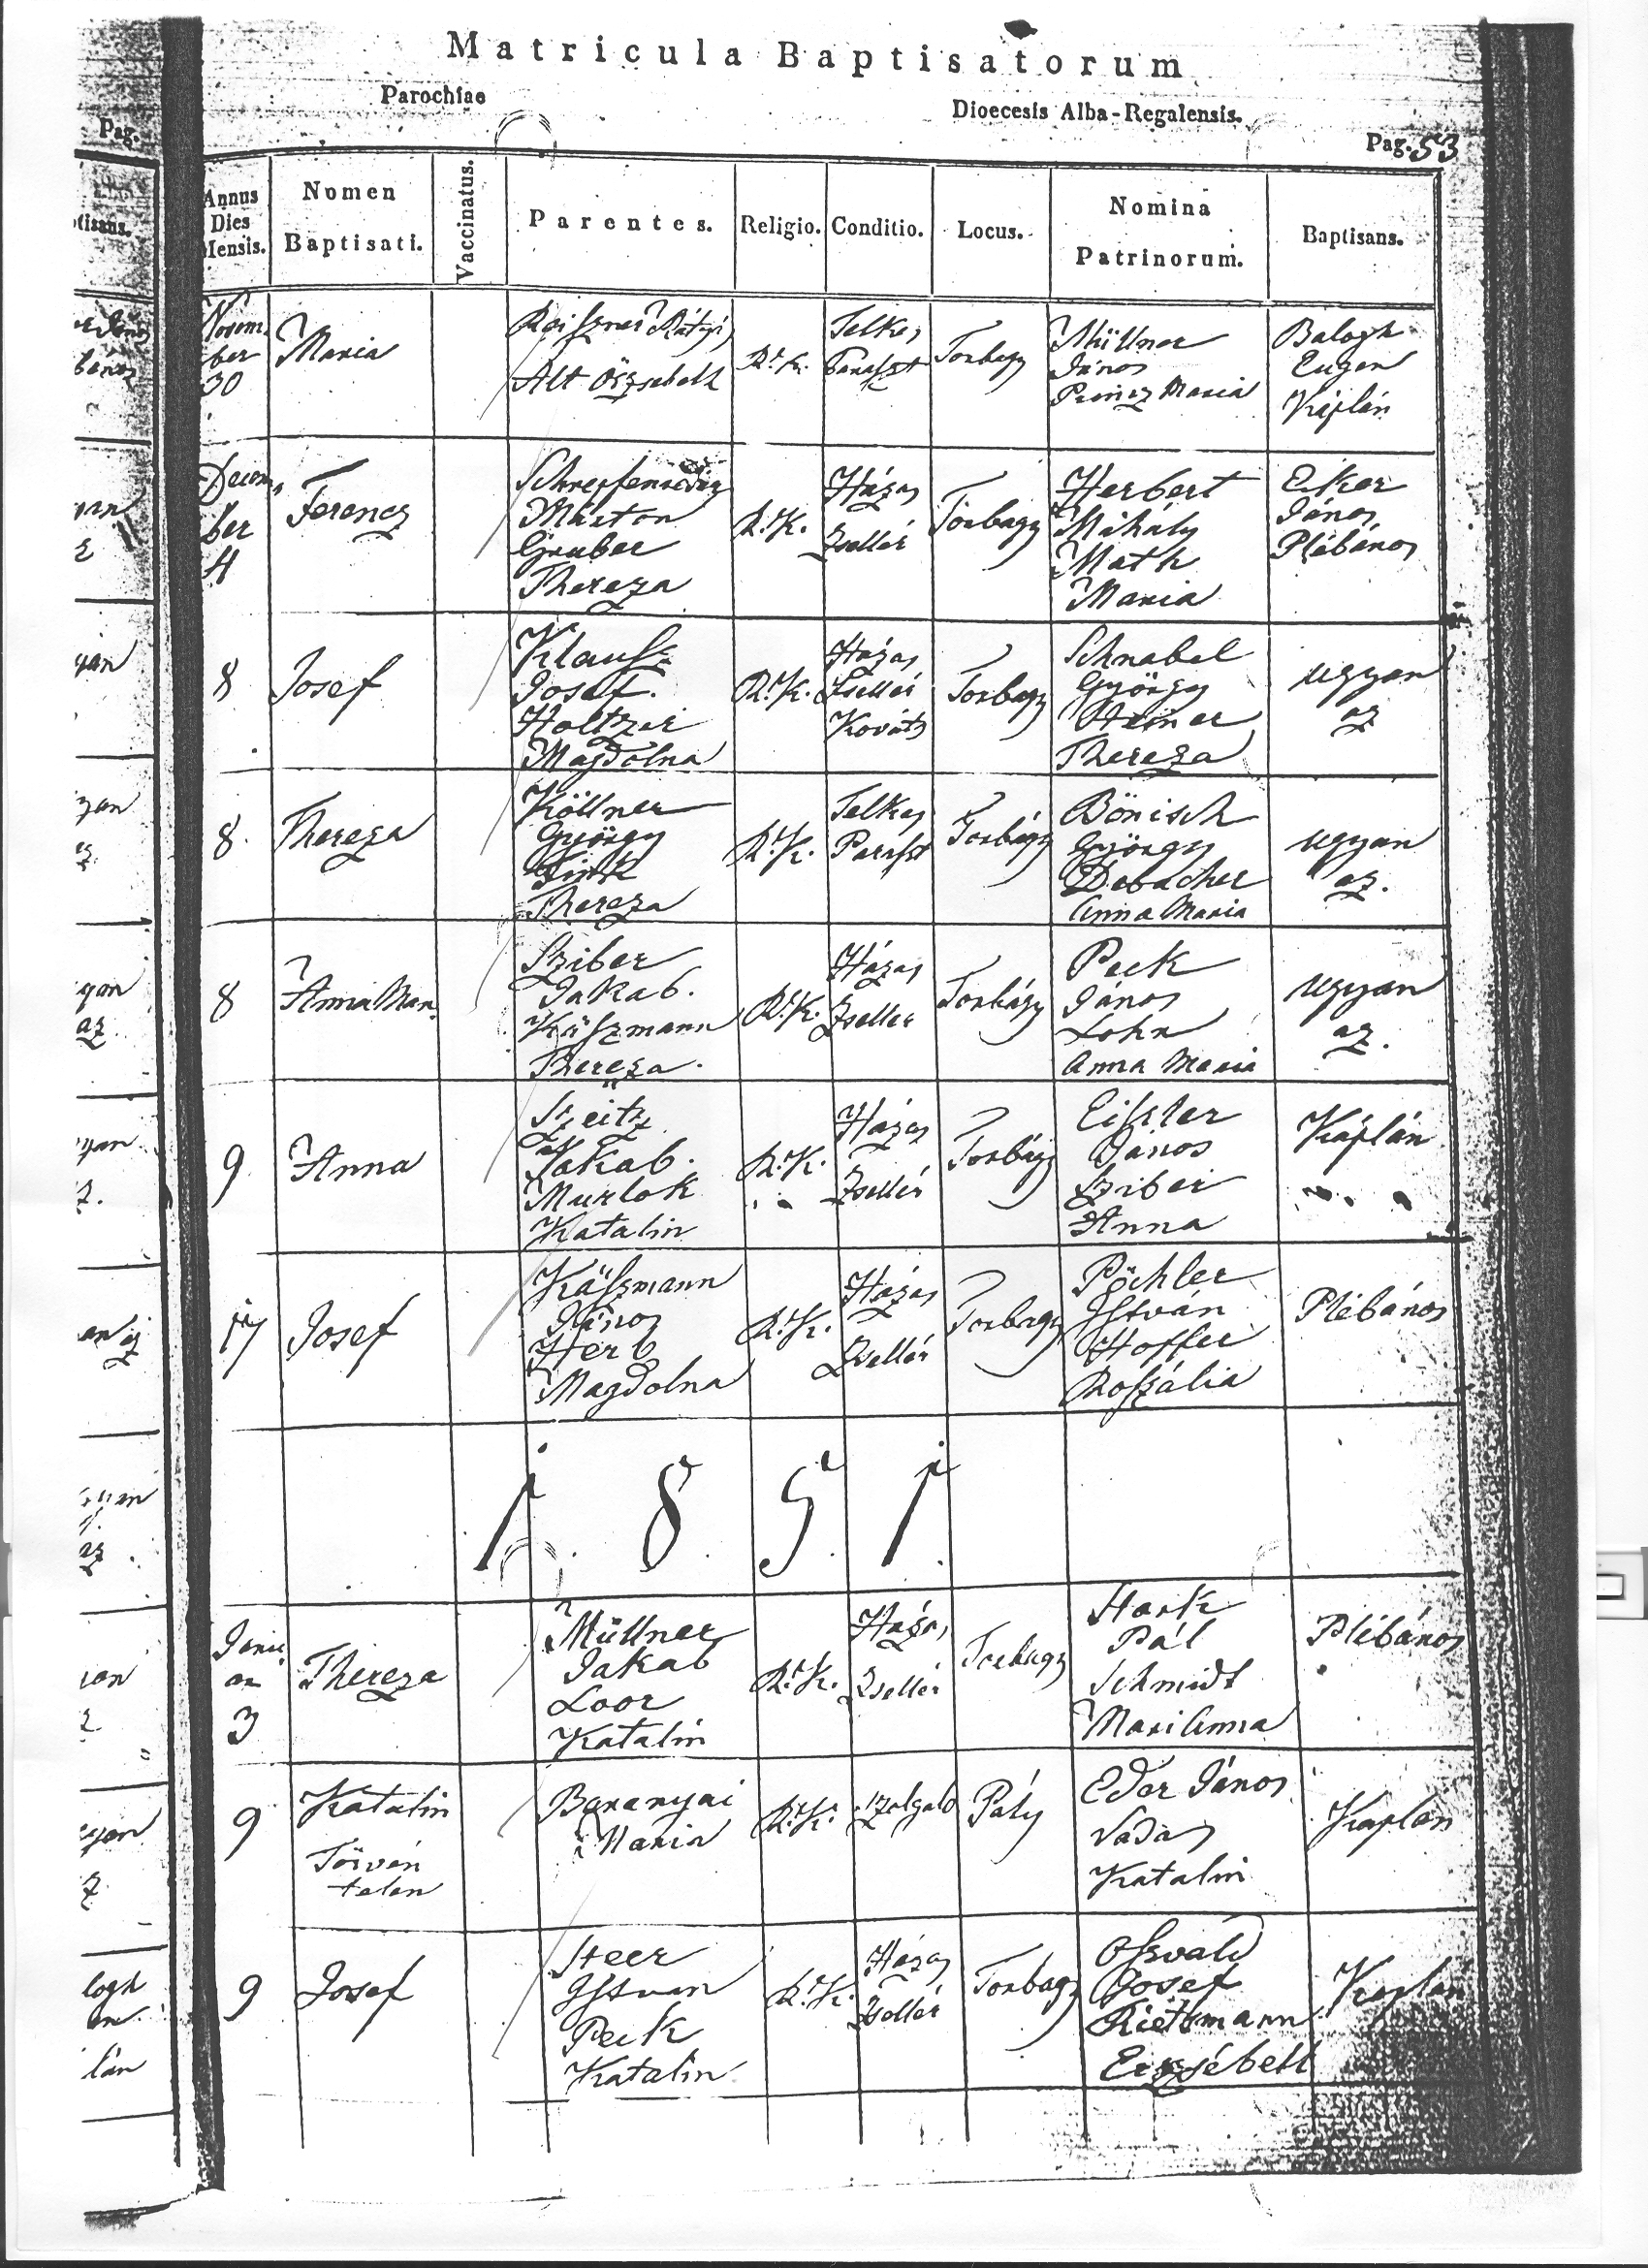 Matricula Baptisatorum
Parochiae
Dioecesis Alba-Regalensis.
Pag.
Pag. 53
Annus Dies Mensis.
Nomen Baptisati.
Vaccinatus.
Parentes.
Religio.
Conditio.
Locus.
Nomina Patrinorum.
Baptisans.
Novem
ber
30
Maria
Alt
R. K.
Telkes
Torbagy
Müllner
János
Princz Maria
Balogh
Eugen
Káplán
Decem
ber
4
Ferencz
Márton
Gruber
Thereza
R. K.
Házas
Zsellér
Torbagy
Herbert
Mihály
Math
Maria
Eker
János
Plébános
8
Josef
Klausz
Josef.
Holtzer
Magdolna
R. K.
Házas
Zsellér
Kováts
Torbagy
Schnabel
György
Steiner
Thereza
ugyan
az
8.
Thereza
Köllner
György
Fink
Thereza
R. K.
Telkes
Paraszt
Torbágy
Bönisch
György
Debacher
Anna Maria
ugyan
az.
8
Anna Mar.
Sziber
Jakab.
Käszmann
Thereza.
R. K.
Házas
Zseller
Torbágy
Peck
János
Lohr
Anna Maria
ugyan
az.
9
Anna
Szeitz
Jakab.
Murlok
Katalin
R. K.
Házas
Zsellér
Torbágy
Eiszler
János
Sziber
Anna
Káplán
17
Josef
Käszmann
János
Herb
Magdolna
R. K.
Házas
Zsellér
Torbagy
Pöchler
István
Hoffer
Roszália
Plébános
1 8 5 1
Janu
ar
3
Thereza
Müllner
Jakab
Loor
Katalin
R. K.
Házas
Zsellér
Torbagy
Stark
Pál
Schmidt
Mari Anna
Plébános
9
Katalin
Törvén
telen
Baranyai
Maria
R. K.
szolgaló
Páty
Eder János
Vadas
Katalin
Kaplán
9
Josef
Steer
Istvan
Peck
Katalin
R. K.
Házas
Zsellér
Torbagy
Oszvald
Josef
Rietsmann
Erzsébett
Kaplán